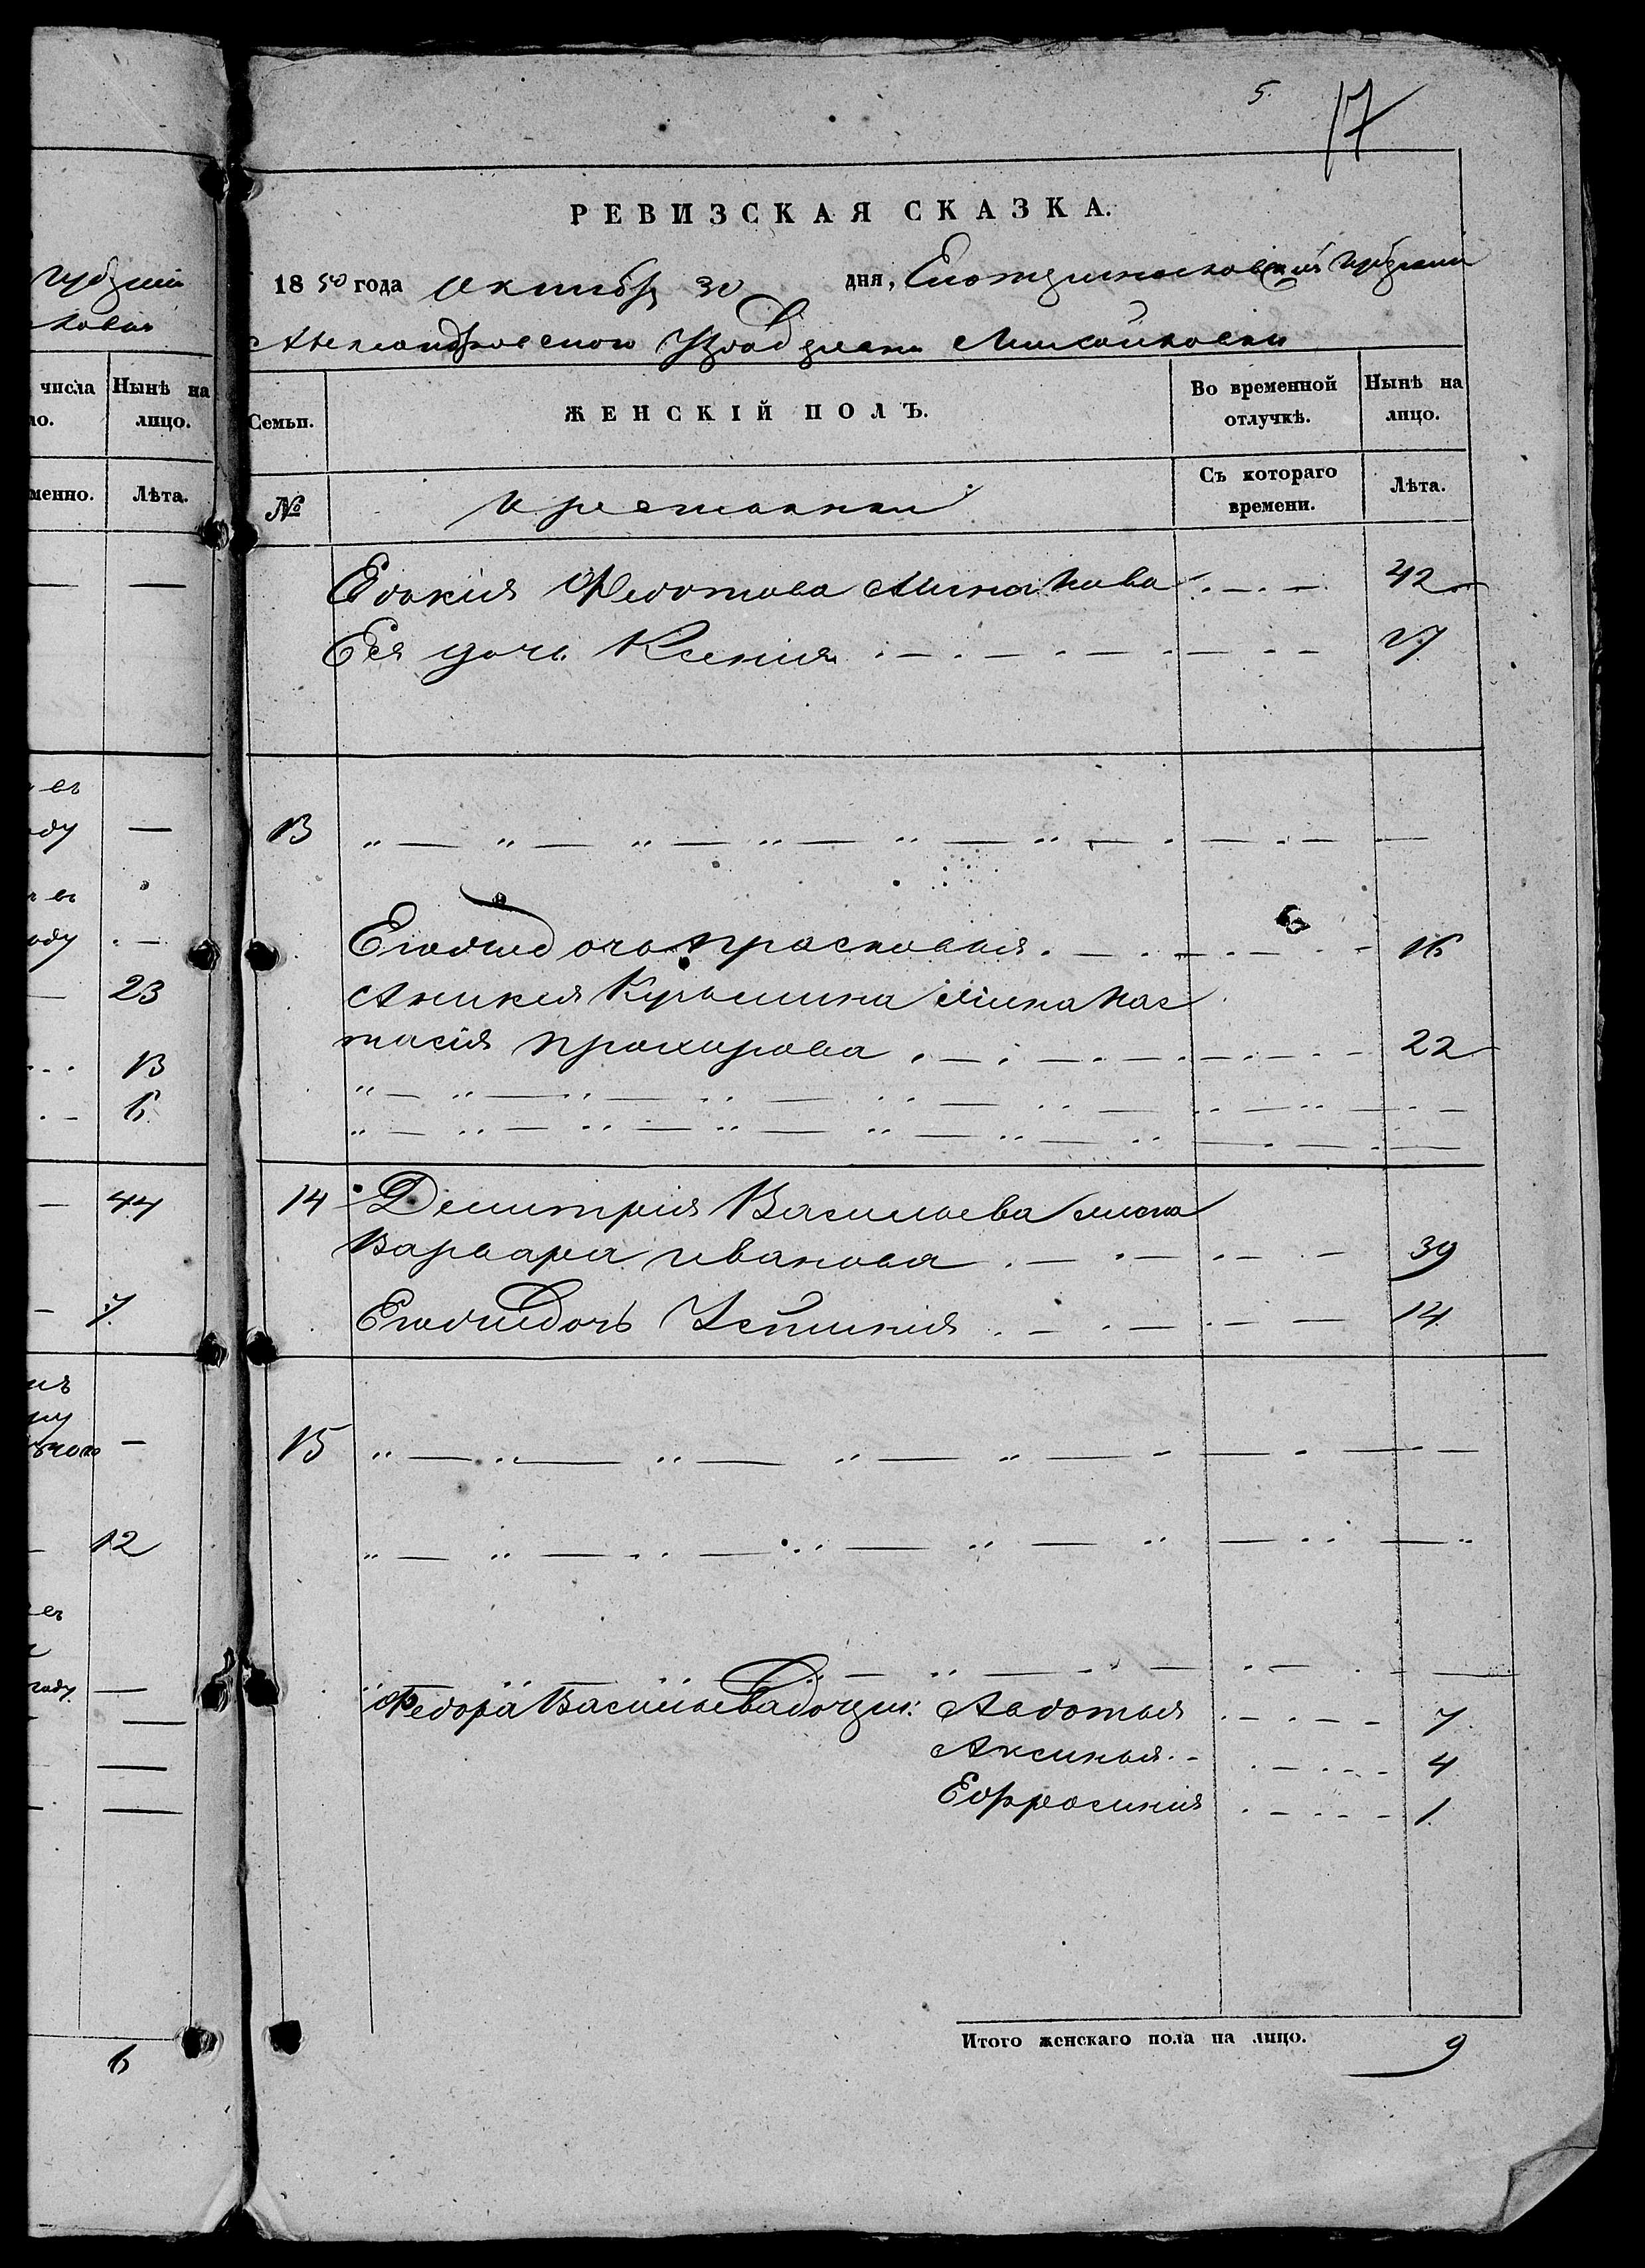 5.
17
РЕВИЗСКАЯ СКАЗКА.
1850 года Октября 30 дня, Екатеринославской Губернии
Александровского Уезда деревни
Семьи.
ЖЕНСКІЙ ПОЛЪ.
Во временной отлучкѣ.
Нынѣ на лицо.
№
Съ котораго времени.
Лѣта.
Федотова 42
Ея дочь Ксения 27
13
Его дочь Прасковья 16
жена Нас
тасія Прохорова 22
14 Демитрия Васильева жена
Варвара Иванова 39
Его дочь 14
15
Федора Васильева дочери: Авдотья 7
Аксинья 4
Ефросиния 1
Итого женскаго пола на лицо. 9
числа
Нынѣ на
лицо.
менно.
Лѣта.
въ
оду
въ
оду
23
13
6
44
7
12
году
6